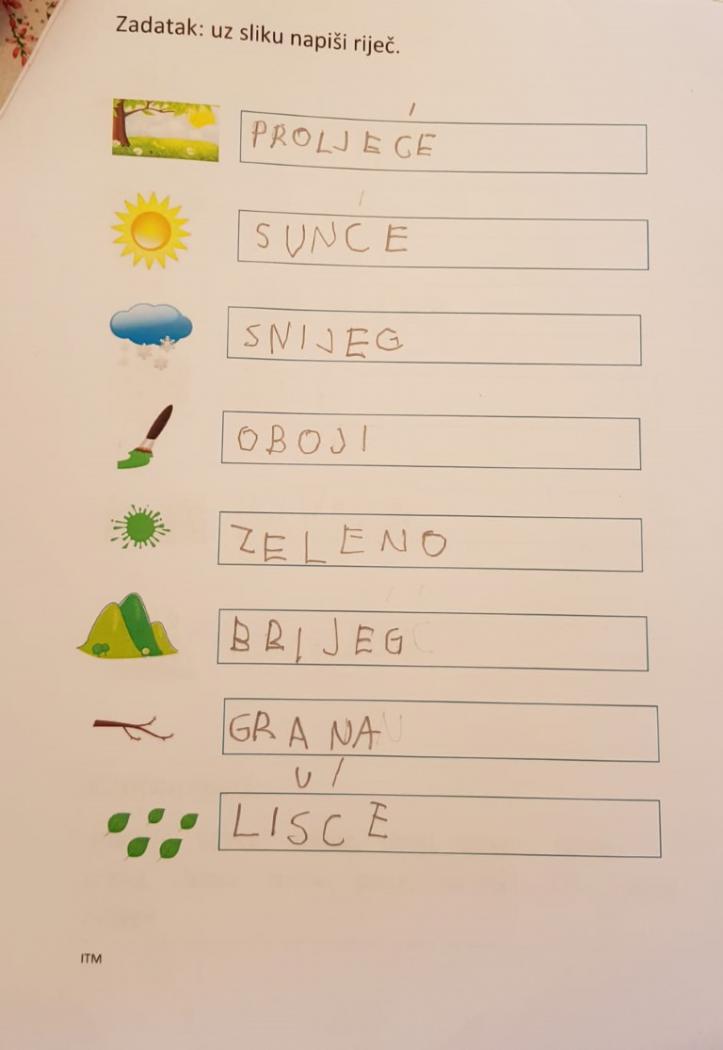 Zadatak: uz sliku napiši riječ.
PROLJEĆE
SUNCE
SNIJEG
OBOJI
ZELENO
BRIJEG
GRANA
LIŠĆE
ITM